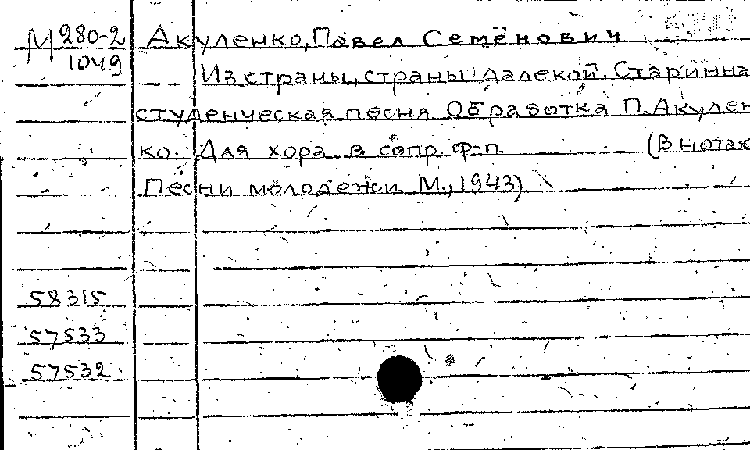 М 280-2 Акуленко, Павел Семёнович
1049
Из страны, страны далекой. Старинна
студенческая песня. Обработка П. Акулен
ко. Для хора в сопр. ф-п (В нотах
Песни молодежи М., 1943)
58315
57533
57532